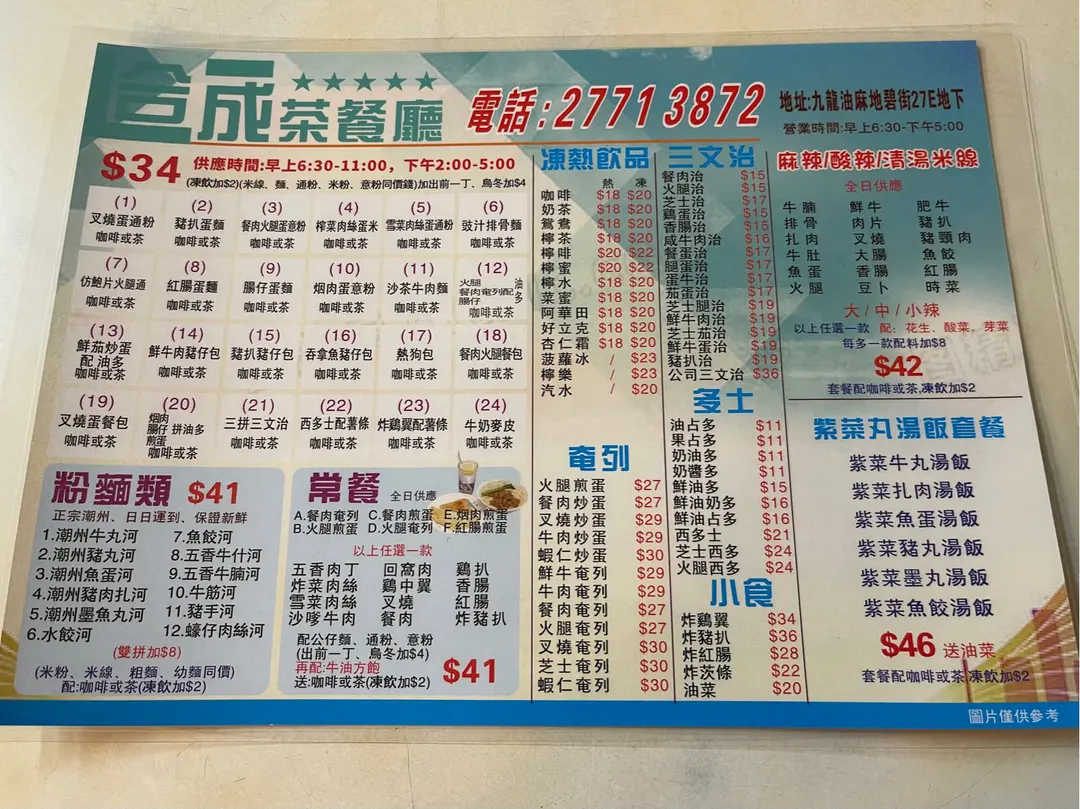 合成茶餐廳
電話:2771 3872
地址:九龍油麻地碧街27E地下
營業時間:早上6:30-下午5:00
$34 供應時間:早上6:30-11:00，下午2:00-5:00
(凍飲加$2)(米線、麵、通粉、米粉、意粉同價錢)加出前一丁、烏冬加$4
(1)
叉燒蛋通粉
咖啡或茶
(2)
豬扒蛋麵
咖啡或茶
(3)
餐肉火腿蛋意粉
咖啡或茶
(4)
榨菜肉絲蛋米
咖啡或茶
(5)
雪菜肉絲蛋通粉
咖啡或茶
(6)
豉汁排骨麵
咖啡或茶
(7)
仿鮑片火腿通
咖啡或茶
(8)
紅腸蛋麵
咖啡或茶
(9)
腸仔蛋麵
咖啡或茶
(10)
烟肉蛋意粉
咖啡或茶
(11)
沙茶牛肉麵
咖啡或茶
(12)
火腿
餐肉奄列配油多
腸仔
咖啡或茶
(13)
鮮茄炒蛋
配油多
咖啡或茶
(14)
鮮牛肉豬仔包
咖啡或茶
(15)
豬扒豬仔包
咖啡或茶
(16)
吞拿魚豬仔包
咖啡或茶
(17)
熱狗包
咖啡或茶
(18)
餐肉火腿餐包
咖啡或茶
(19)
叉燒蛋餐包
咖啡或茶
(20)
烟肉
腸仔 拼油多
煎蛋
咖啡或茶
(21)
三拼三文治
咖啡或茶
(22)
西多士配薯條
咖啡或茶
(23)
炸鷄翼配薯條
咖啡或茶
(24)
牛奶麥皮
咖啡或茶
粉麵類 $41
正宗潮州、日日運到、保證新鮮
1.潮州牛丸河
2.潮州豬丸河
3.潮州魚蛋河
4.潮州豬肉扎河
5.潮州墨魚丸河
6.水餃河
7.魚餃河
8.五香牛什河
9.五香牛腩河
10.牛筋河
11.豬手河
12.蠔仔肉絲河
(雙拼加$8)
(米粉、米線、粗麵、幼麵同價)
配:咖啡或茶(凍飲加$2)
常餐 全日供應
A.餐肉奄列 C.餐肉煎蛋 E.烟肉煎蛋
B.火腿煎蛋 D.火腿奄列 F.紅腸煎蛋
以上任選一款
五香肉丁 回窩肉 鷄扒
炸菜肉絲 鷄中翼 香腸
雪菜肉絲 叉燒 紅腸
沙嗲牛肉 餐肉 炸豬扒
配公仔麵、通粉、意粉
(出前一丁、烏冬加$4)
再配:牛油方飽
送:咖啡或茶(凍飲加$2)
$41
凍熱飲品
熱 凍
咖啡 $18 $20
奶茶 $18 $20
鴛鴦 $18 $20
檸茶 $18 $20
檸啡 $20 $22
檸蜜 $20 $22
檸水 $18 $20
菜蜜 $18 $20
阿華田 $18 $20
好立克 $18 $20
杏仁霜 $18 $20
菠蘿冰 / $23
檸樂 / $23
汽水 / $20
奄列
火腿煎蛋 $27
餐肉炒蛋 $27
叉燒炒蛋 $29
牛肉炒蛋 $29
蝦仁炒蛋 $30
鮮牛奄列 $29
牛肉奄列 $29
餐肉奄列 $27
火腿奄列 $27
叉燒奄列 $30
芝士奄列 $30
蝦仁奄列 $30
三文治
餐肉治 $15
火腿治 $15
芝士治 $17
鷄蛋治 $15
香腸治 $15
咸牛肉治 $16
餐蛋治 $17
腿蛋治 $17
蛋牛治 $17
茄蛋治 $17
芝士腿治 $19
鮮牛肉治 $19
芝士茄治 $19
鮮牛蛋治 $19
豬扒治 $19
公司三文治 $36
多士
油占多 $11
果占多 $11
奶油多 $11
奶醬多 $11
鮮油多 $15
鮮油奶多 $16
鮮油占多 $16
西多士 $21
芝士西多 $24
火腿西多 $24
小食
炸鷄翼 $34
炸豬扒 $36
炸紅腸 $28
炸茨條 $22
油菜 $20
麻辣/酸辣/清湯米線
全日供應
牛腩 鮮牛 肥牛
排骨 肉片 豬扒
扎肉 叉燒 豬頸肉
牛肚 大腸 魚餃
魚蛋 香腸 紅腸
火腿 豆卜 時菜
大/中/小辣
以上任選一款 配:花生、酸菜、芽菜
每多一款配料加$8
$42
套餐配咖啡或茶,凍飲加$2
紫菜丸湯飯套餐
紫菜牛丸湯飯
紫菜扎肉湯飯
紫菜魚蛋湯飯
紫菜豬丸湯飯
紫菜墨丸湯飯
紫菜魚餃湯飯
$46 送油菜
套餐配咖啡或茶,凍飲加$2
圖片僅供參考